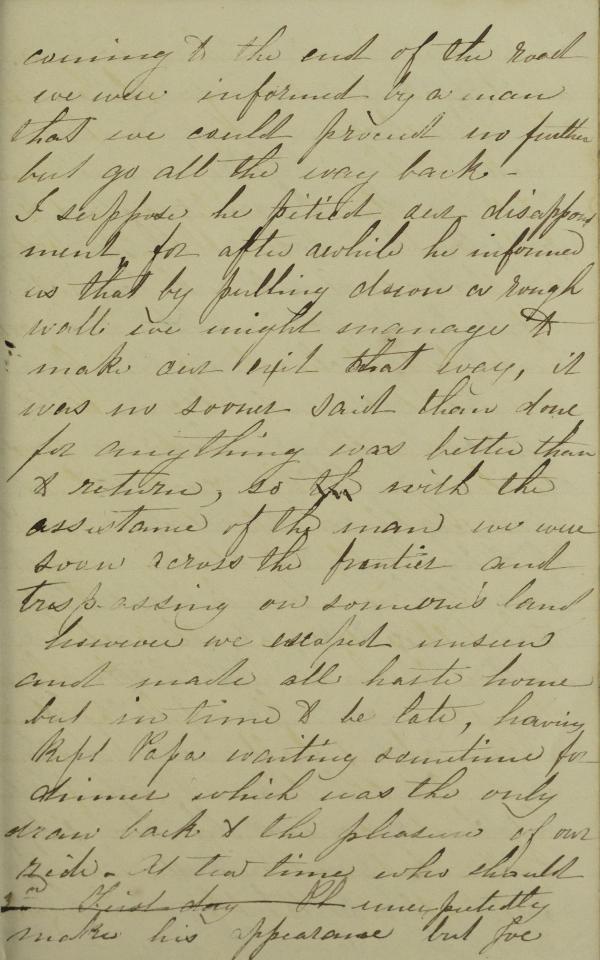 coming to the end of the road
we were informed by a man
that we could proceed no further
but go all the way back -
I suppose he pitied our disappoint
ment, for after awhile he informed
us that by pulling down a rough
wall we might manage to
make our exit that way, it
was no sooner said than done
for anything was better than
to return, so with the
assistance of the man we were
soon across the frontier and
tresp-assing on someone's land
however we escaped unseen
and made all haste home
but in time to be late, having
kept Papa waiting sometime for
dinner which was the only
draw back to the pleasure of our
ride. At tea time who should
First day unexpectedly
make his appearance but Joe